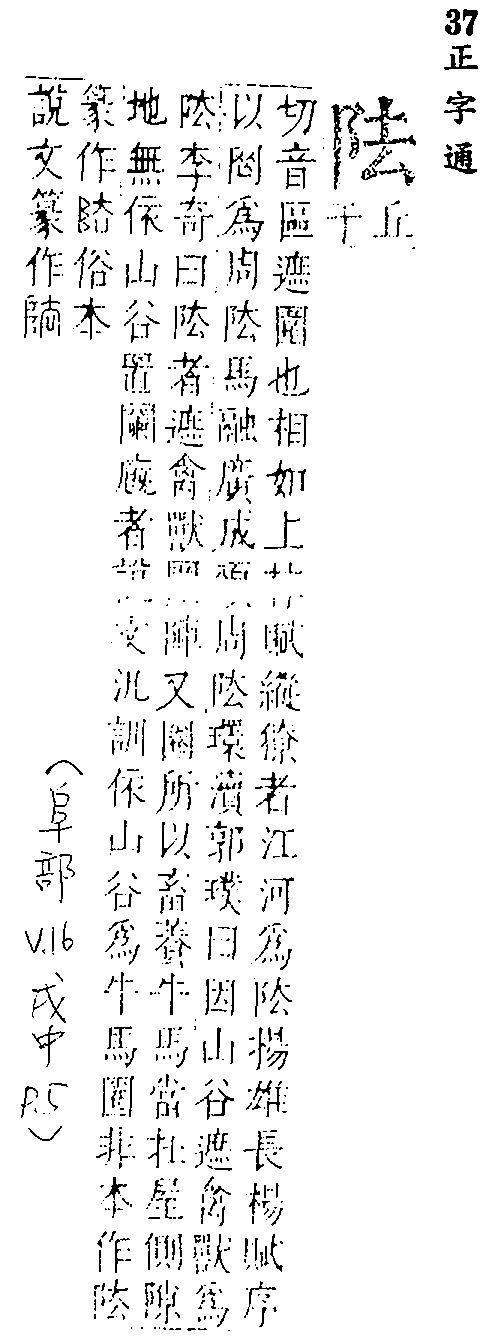 37
正字通
阹 丘
于
切音區遮闌也相如上林賦縱獠者江河爲阹揚雄長楊賦序
以罔爲周阹馬融廣成頌周阹環瀆郭璞曰因山谷遮禽獸爲
阹李奇曰阹者遮禽獸圍陣又闌所以畜養牛馬當在屋側隙
地無依山谷置闌廐者說文汎訓依山谷爲牛馬圈非本作阹
篆作䧢俗本
說文篆作
(阜部
V.16
戌中
P.5)